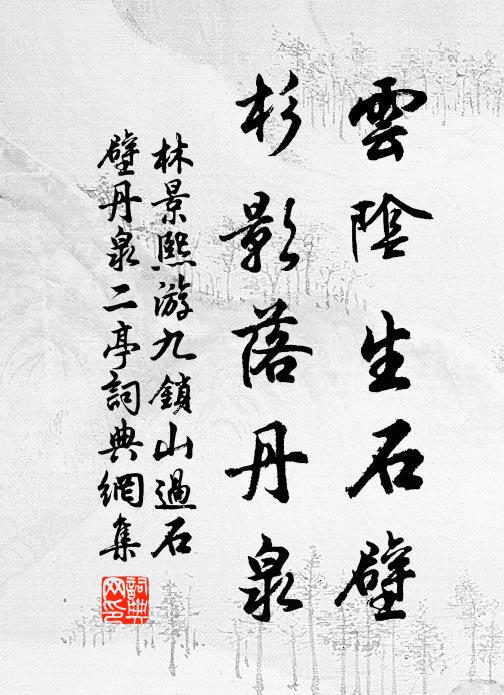 雲陰生石壁
杉影落丹泉
林景熙游九鎖山過石
壁丹泉二亭詞典網集